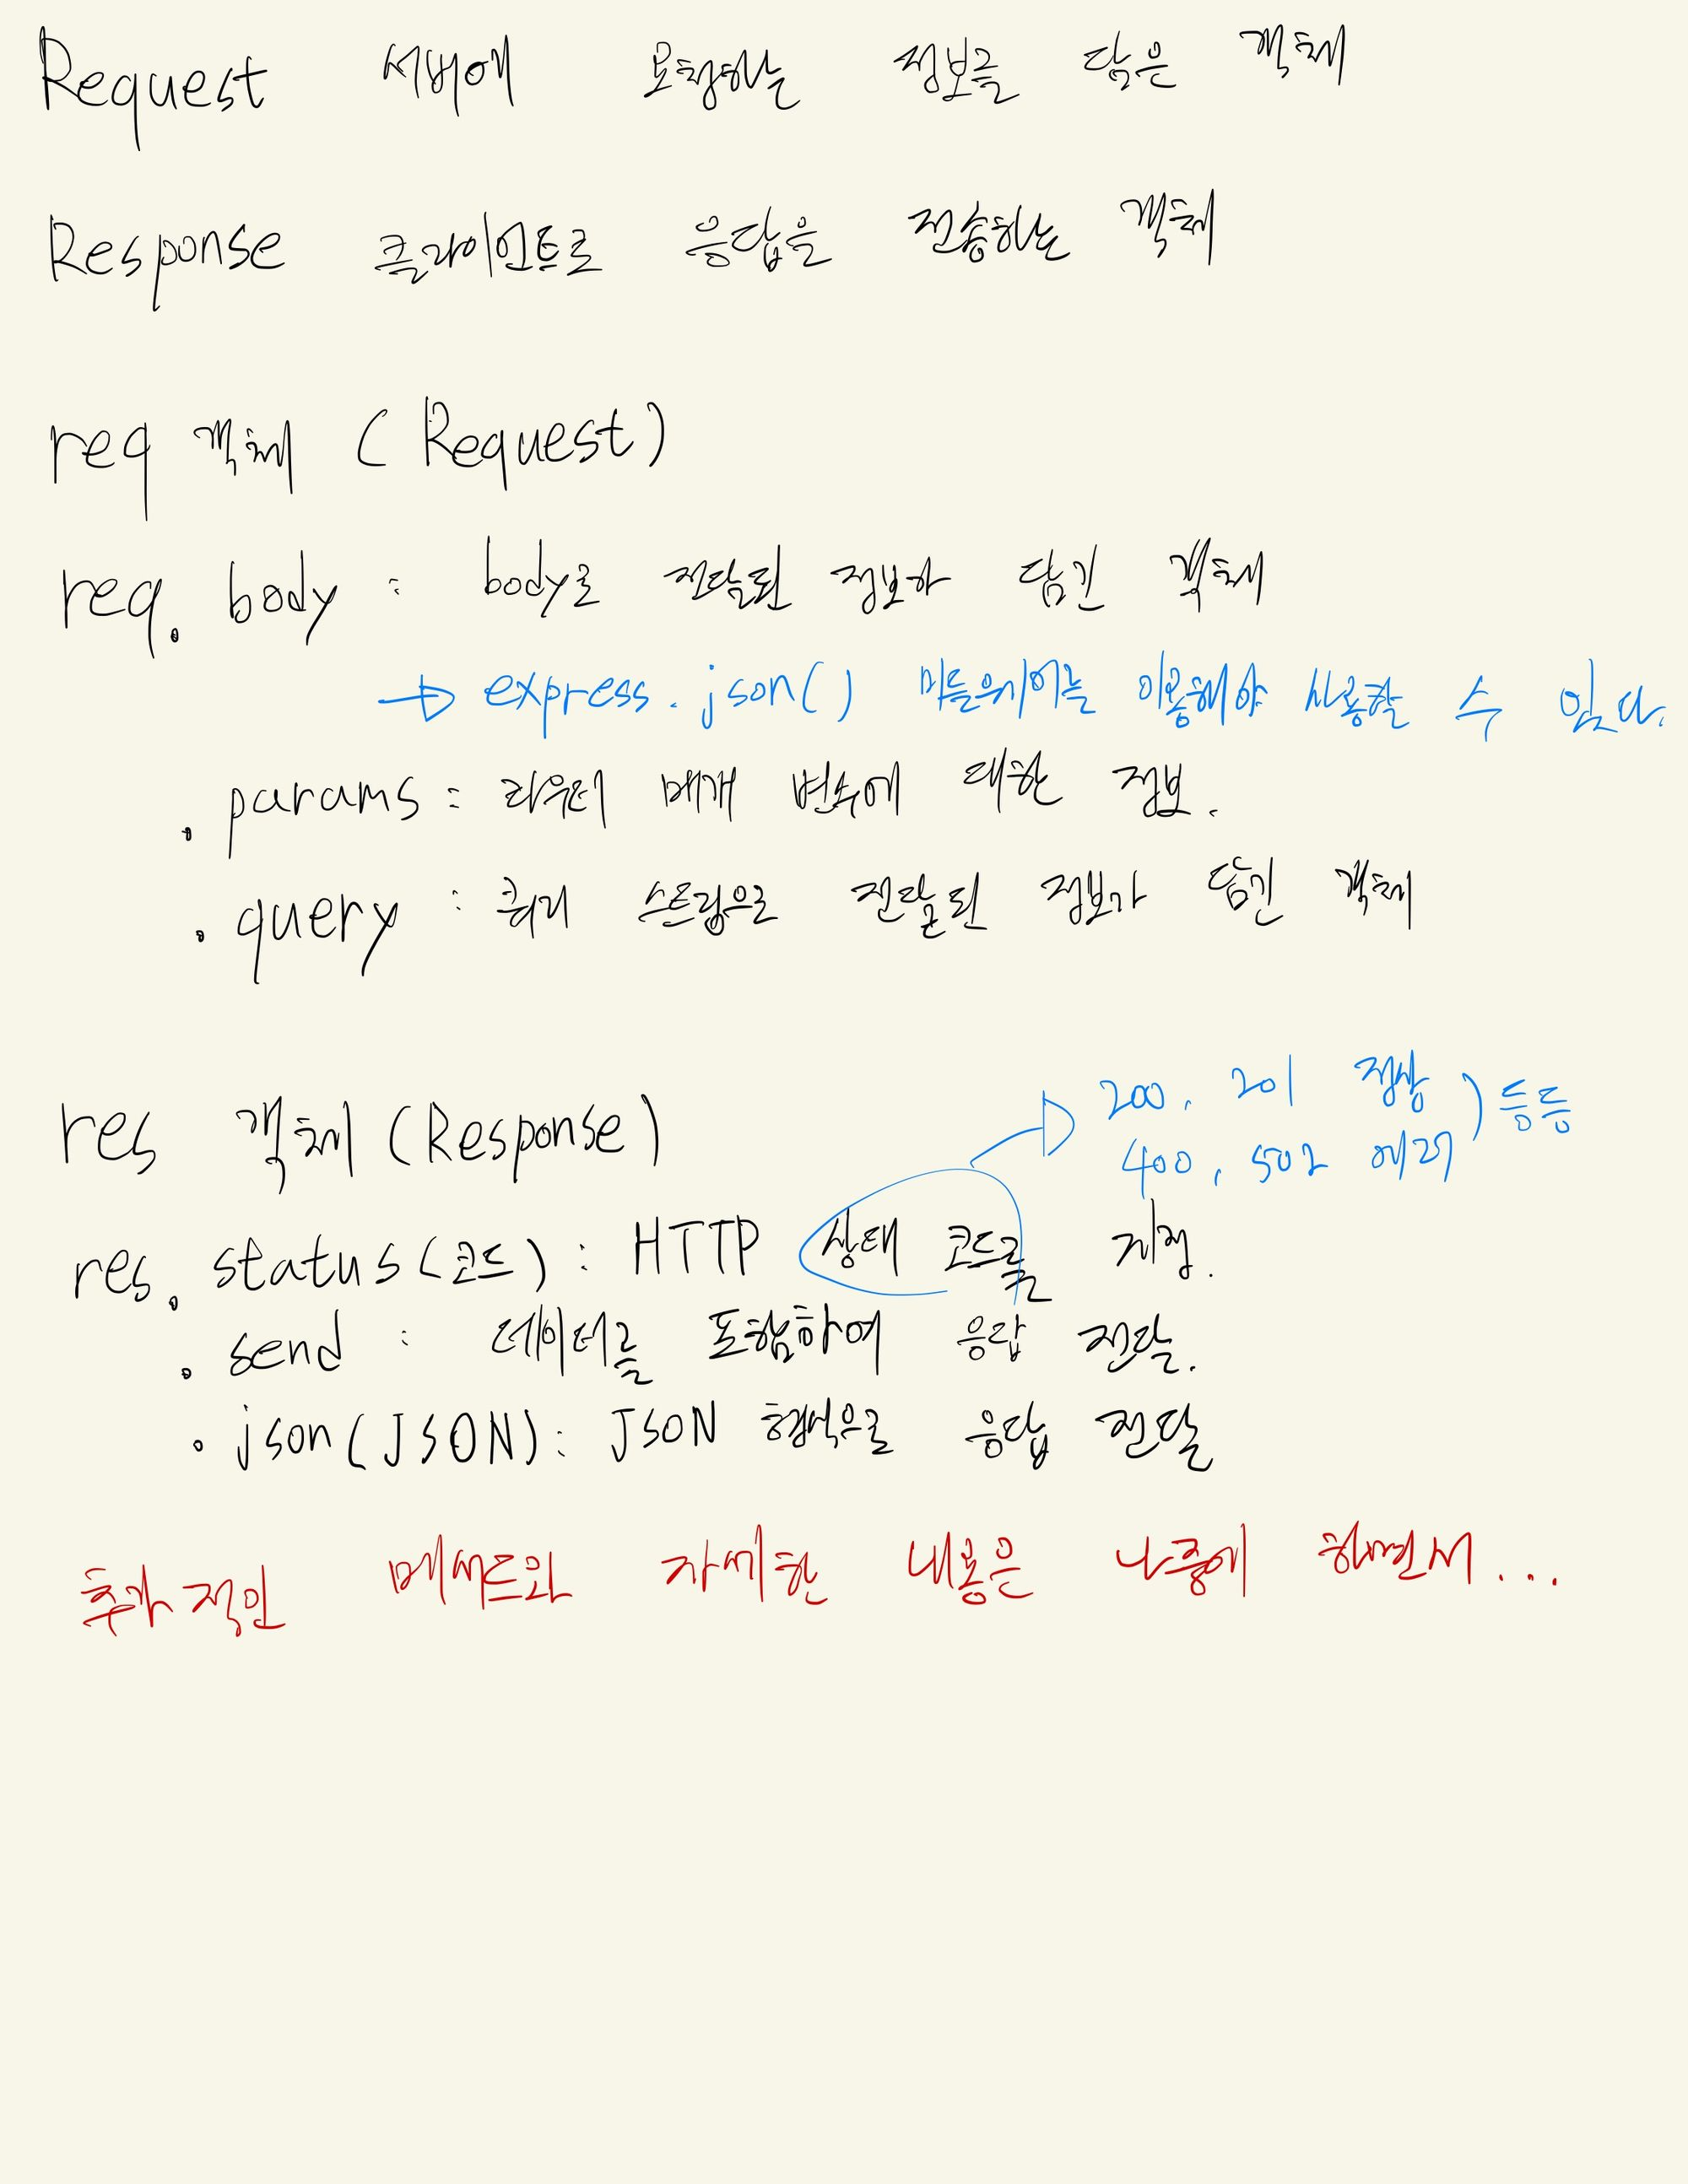 Request 서버에 요청하는 정보를 담은 객체
Response 클라이언트로 응답을 전송하는 객체
req 객체 (Request)
req. body : body로 전달된 정보가 담긴 객체
→ express.json() 미들웨어를 이용해야 사용할 수 있다.
. params : 라우터 매개 변수에 대한 정보.
. query : 쿼리 스트링으로 전달된 정보가 담긴 객체
200, 201 정상
400, 502 에러 ) 등등
res 객체 (Response)
res. status(코드) : HTTP 상태 코드를 지정.
. send : 데이터를 포함하여 응답 전달.
. json(JSON) : JSON 형식으로 응답 전달
추가적인 메서드와 자세한 내용은 나중에 하면서...